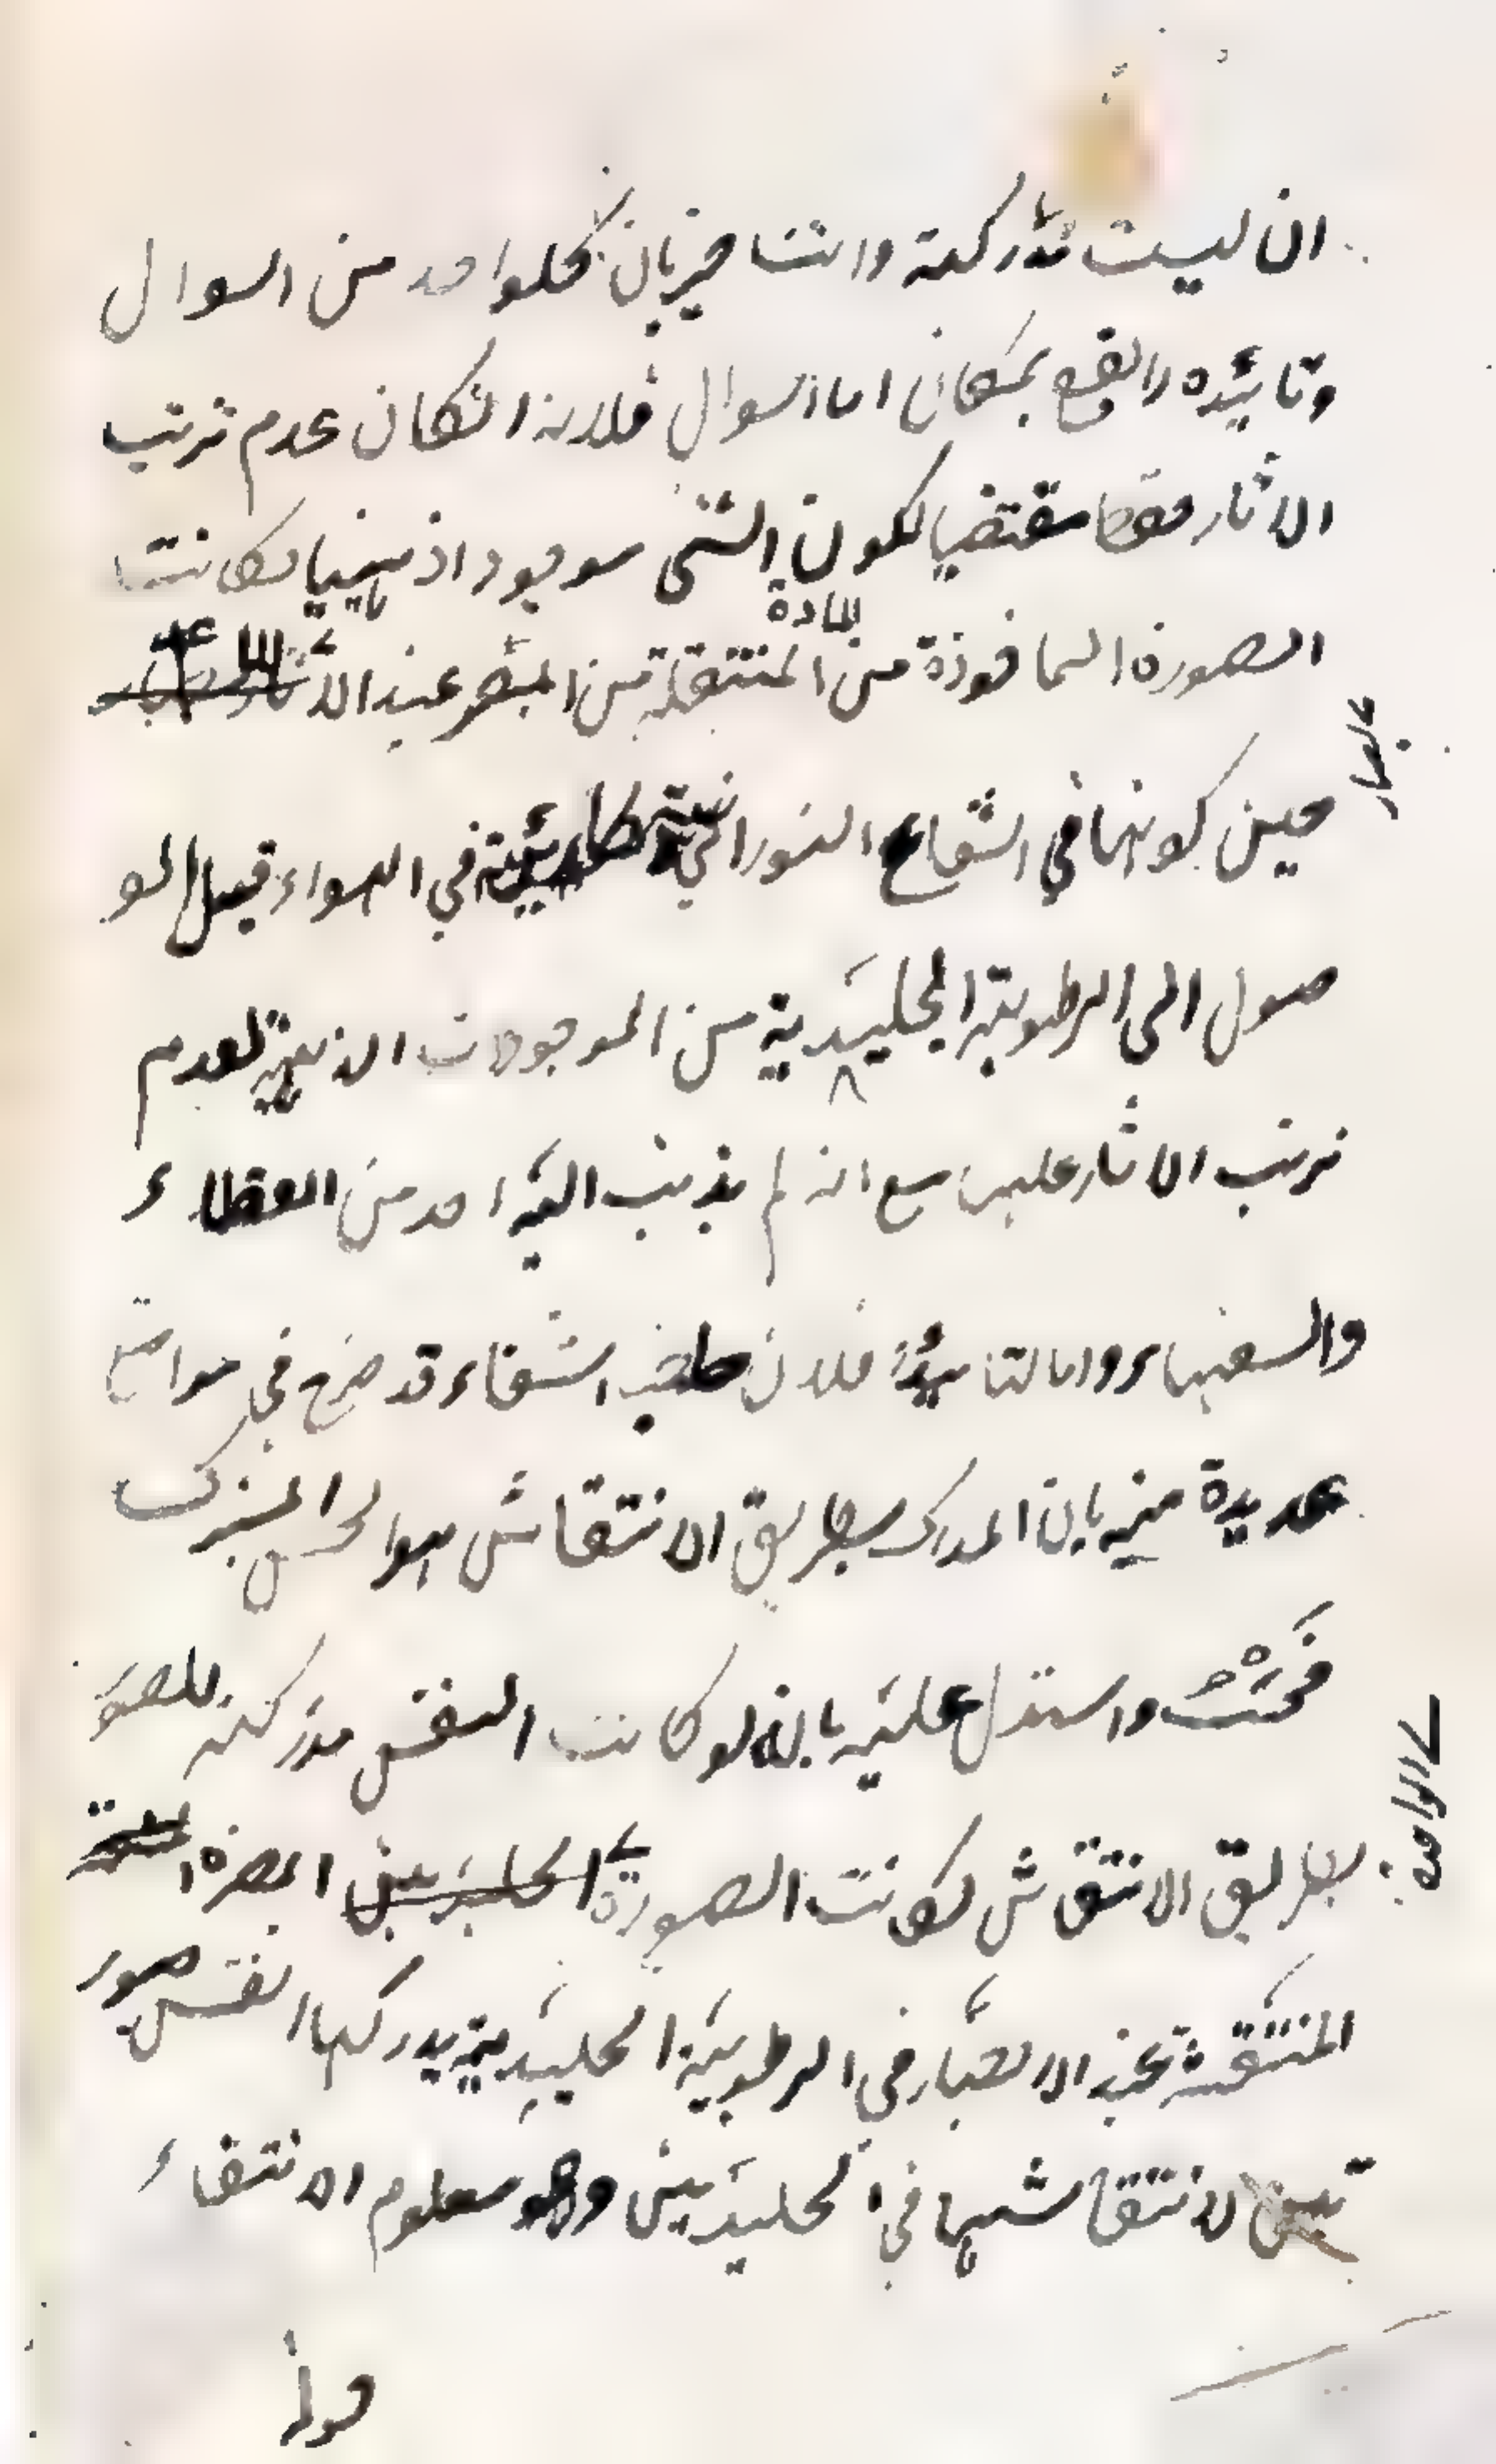 ان ليست مدركة وانت خبير بان كلواحد من السوال
وتائيده واقع بمكان اما السوال فلانه ان كان عدم ترتب
الاثار فقط مقتضيا لكون الشئ موجودا ذهنيا لكانت
الصورة الماخوذة من المادة المنتقلة من المبصر عند
الابصار
حين كونها في الشعاع النوراني في الهواء قبل الو
صول الى الرطوبة الجليدية من الموجودات الذهنية لعدم
ترتب الاثار عليها مع انه لم يذهب اليه احد من العقلاء
والسفهاء واما التائيد فلان صاحب الشفاء قد صرح في مواضع
عديدة منه بان المدرك بطريق الانتقاش هو الحس المشترك
فحسب واستدل عليه بانه لو كانت النفس مدركة للصور
بطريق الانتقاش لكانت الصورة المبصرة
الواحدة
المنتقشة عند الابصار في الرطوبة الجليدية يدركها النفس صور
تين لانتقاشها في الجليديتين وهو معلوم الانتفاء